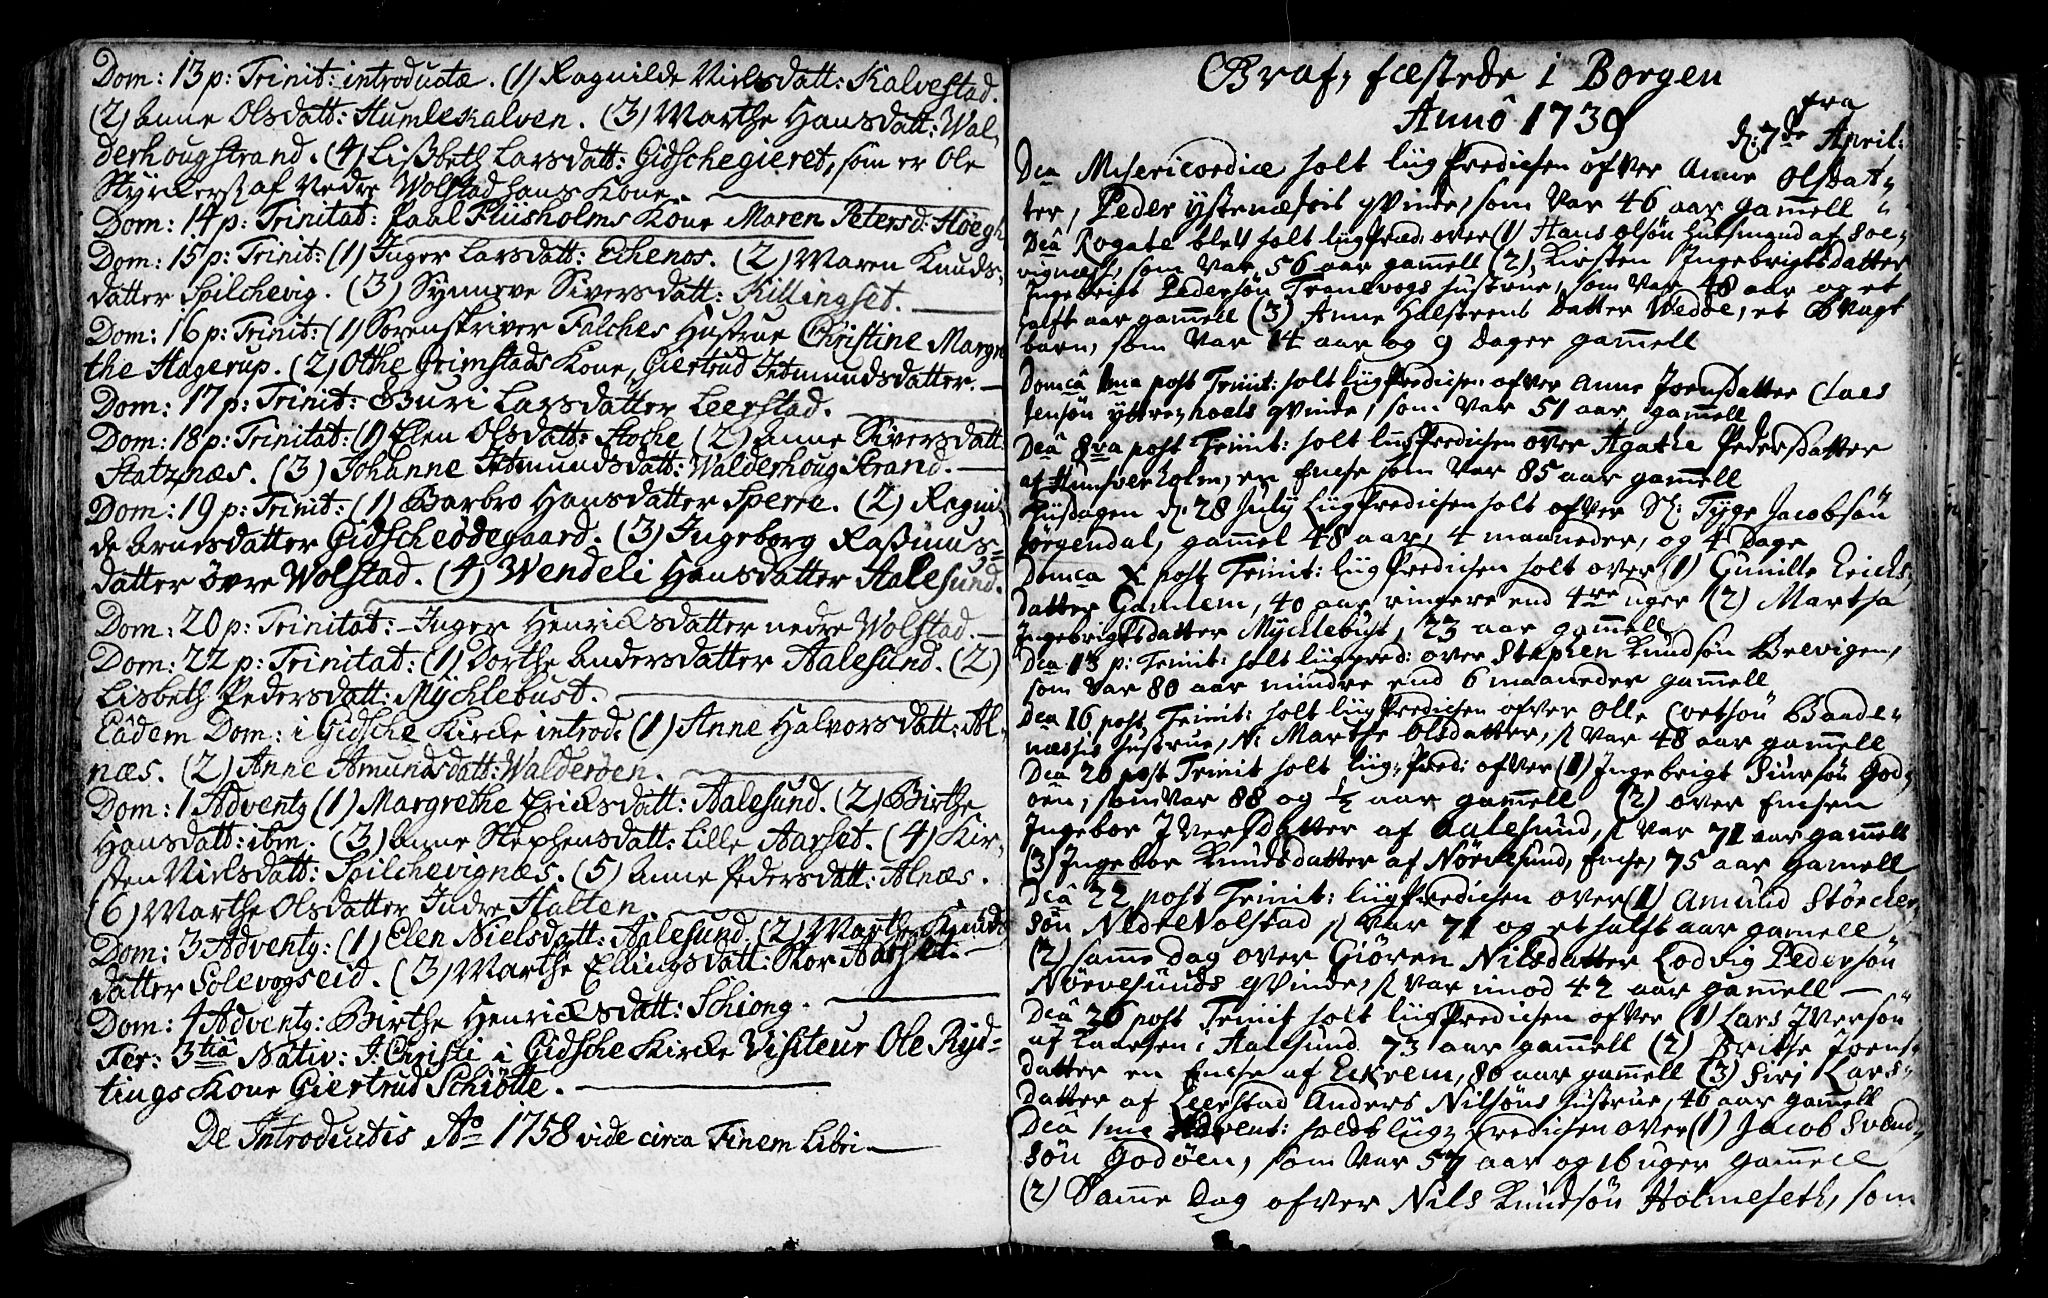 Dom: 13 p: Trinit: introductæ. (1) Ragnilde Nielsdatt: Kalvestad.
(2) Anne Olsdatt: Humlekalven. (3) Marthe Hansdatt: Wal-
derhougstrand. (4) Lisbeth Larsdatt: Gidschegieret, som er Ole
af Nedre Wolstad hans Kone.
Dom: 14 p: Trinitat: Paal Fliisholms Kone Maren Petersd: Høegh
Dom: 15 p: Trinit: (1) Inger Larsdatt: Echenos. (2) Maren Knuds-
datter Spilchevig. (3) Synneve Siversdatt: Killingset.
Dom: 16 p: Trinit: (1) Sorenskriver Falches Hustrue Christine Margre
the Hagerup. (2) Otthe Grimstads Kone, Giertrud Jetmundsdatter.
Dom: 17 p: Trinit: Guri Larsdatter Leerstad.
Dom: 18 p: Trinitat: (1) Elen Olsdatt: Hoche (2) Anne Siversdatt
Statznæs. (3) Johanne Jetmundsdatt: Walderhoug Strand.
Dom: 19 p: Trinit: (1) Barbro Hansdatter Sperre. (2) Regnil
de Arnesdatter Gidscheødegaard. (3) Ingeborg Rasmus-
datter øvre Wolstad. (4) Wendeli Hansdatter Aalesund.
Dom: 20 p: Trinitat: Inger Henricksdatter nedre Wolstad.
Dom: 22 p: Trinitat: (1) Dorthe Andersdatter Aalesund. (2)
Lisbeth Pedersdatt: Mychlebust.
Eâdem Dom: i Gidsche Kircke introd. (1) Anne Halvorsdatt: Al-
næs. (2) Anne Amundsdatt: Walderøen.
Dom: 1 Advent9 (1) Margrethe Ericksdatt: Aalesund. (2) Birthe
Hansdatt: ibm. (3) Anne Stephensdatt: Lille Aarset. (4) Kir-
sten Nielsdatt: Spilchevignæs. (5) Anne Pedersdatt: Alnæs.
(6) Marthe Olsdatter Indre Stalten
Dom: 3 Advent9: (1) Elen Nielsdatt: Aalesund (2) Marthe Knuds
datter Solevogseid. (3) Marthe Ellingsdatt: Stor Aarset.
Dom: 4 Advent9: Birthe Henricksdatt: Schiong.
Fer: 3tiâ Nativ: J. Christi i Gidsche Kircke Visiteur Ole Rys-
tings Kone Giertrud Schiøtte.
De Introductis Ao 1758 vide circa Finem Libri
Graf, fæstede i Borgen
Annô 1739 fra
d: 7de April:
Dca Misericordiæ holt liigPredichen ofver Anne Olsdat-
ter, Peder qvinde, som var 46 aar gamell
Dcâ Rogate blef holt liigPræd: over (1) Hans Olsøn huusmand af Soe-
vignæs, som var 56 aar gamell (2) Kirsten Ingebrigtsdatter
Ingebrigt Pedersøn Tranevogs hustrue, som var 48 aar og et
halft aar gamell (3) Anne Halstens datter Wedde, et Svagt
barn, som var 14 aar og 9 dager gamell
Domcâ 1ma post Trinit: holt liigPredichen ofver Anne Joensdatter Claes
tensøn yttre-hoels qvinde, som var 51 aar gamell
Dcâ 8va post Trinit: holt liigPredichen over Agathe Pedersdatter
af Hunsverholm, en Enche som var 85 aar gamell
Tiisdagen d. 28 July LiigPredichen holt ofver Sl: Tyge Jacobsøn
Jorgendal, gammel 48 aar, 4 maaneder, og 4 Dage
Domca X post Trinit: LiigPredichen holt over (1) Gunille Erichs
datter Gamlem, 40 aar ringere end 4re uger (2) Martha
Ingebrigtsdatter Mychlebust, 23 aar gamell
Dca 13 p: Trinit: holt liigpred: over Stephen Knudsøn Brevigen,
som var 80 aar mindre end 6 maaneder gamell
Dca 16 post Trinit: holt liigPredichen ofver Olle Baade-
næssis hustrue, N: Marthe Olsdatter, s var 48 aar gamell
Dcâ 20 post Trinit holt liig-Pred: ofver (1) Ingebrigt Siursøn God-
øen, som var 88 og ½ aar gamell (2) over Enchen
Ingebor Iversdatter af Aalesund, s var 71 aar gamell
(3) Ingebor Knudsdatter af Nørvesund, Enche, 75 aar gamell
Dcâ 22 post Trinit: liigPredichen over (1) Amund Størcher
søn Nedre Volstad, s var 71 og et halft aar gamell
(2) samme dag over Giøren Nilsdatter Lodvig Pedersøn
Nørvesunds qvinde, s var imod 42 aar gamell
Dcâ 26 post Trinit holt liigPredichen ofver (1) Lars Iversøn
af i Aalesund 73 aar gamell (2) Brithe Joens-
datter en Enche af Eckrem, 80 aar gamell (3) Siri Lars-
datter af Leerstad Anders Nilsøns hustrue, 46 aar gamell
Dcâ 1ma Advent: holds liig-Predichen over (1) Jacob Svend-
søn Godøen, som var 57 aar og 16 uger gamell
(2) Samme Dag ofver Nils Knudsøn Holmeseth, som